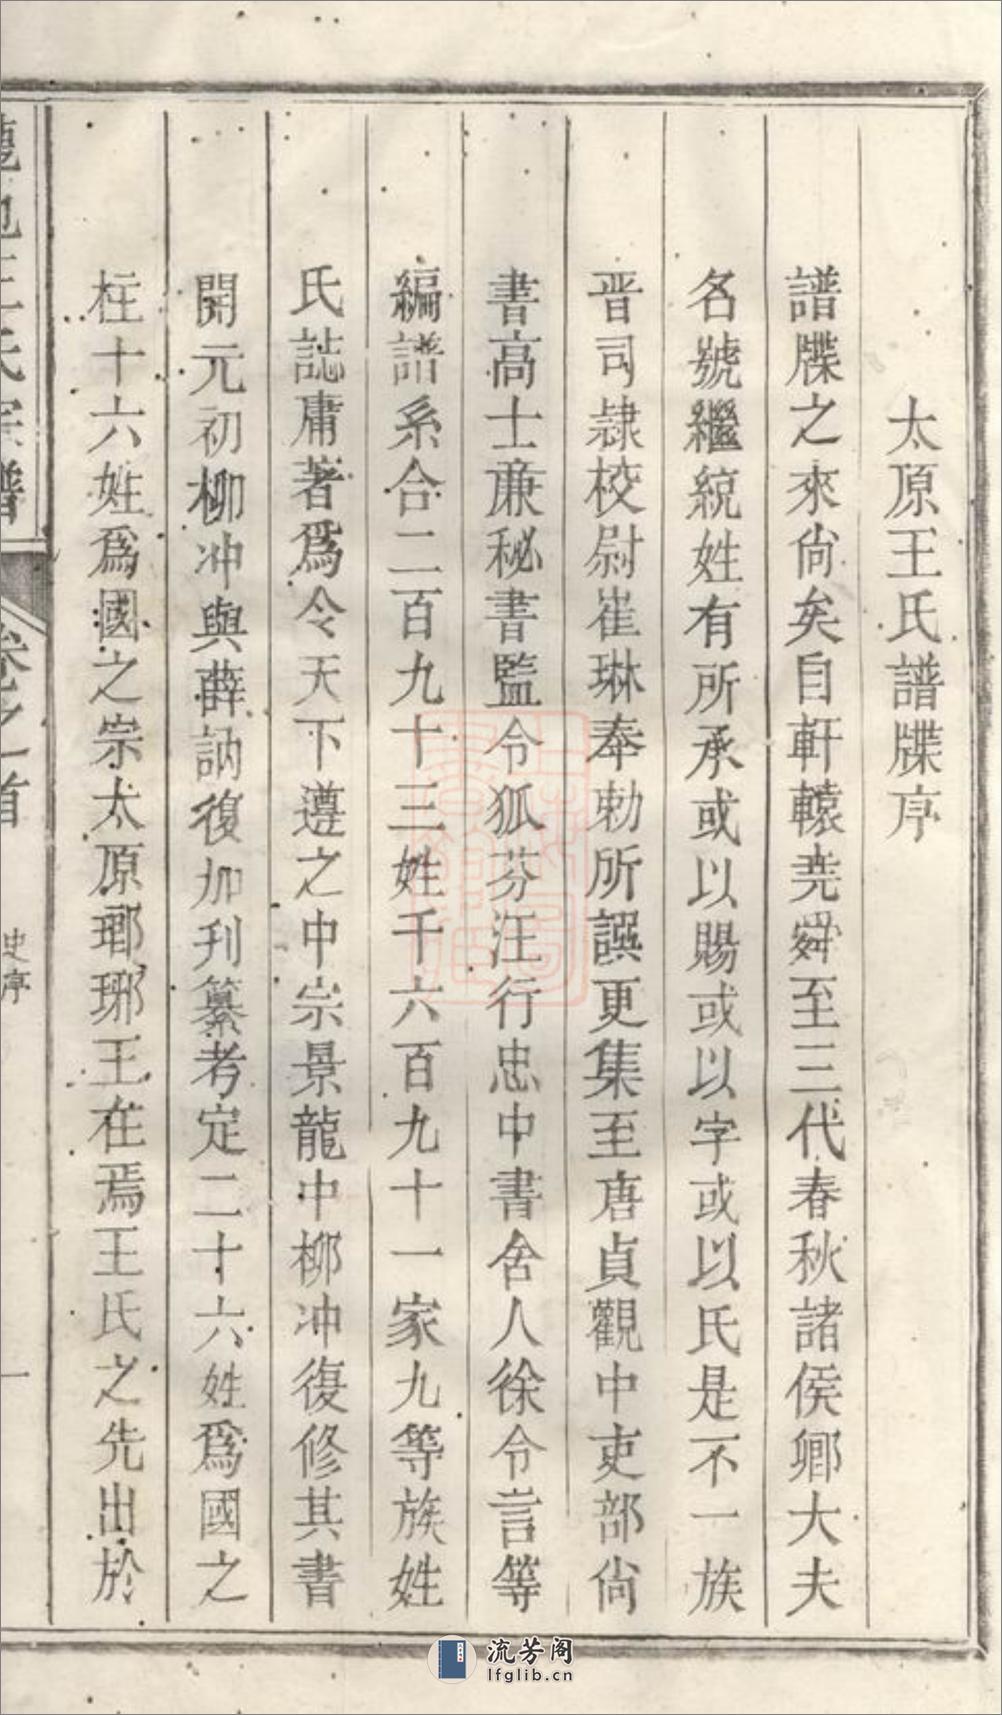 太原王氏譜牒序
譜牒之來尙矣自軒轅尭舜至三代春秋諸侯卿大夫
名號繼統姓有所承或以賜或以字或以氏是不一族
晋司隷校尉崔琳奉勅所譔更集至唐貞觀中吏部尙
書高士亷秘書監令狐芬汪行忠中書舍人徐令言等
編譜系合二百九十三姓千六百九十一家九等族姓
氏誌庸著爲令天下遵之中宗景龍中柳冲復修其書
開元初柳冲與薛訥復加刋纂考定二十六姓爲國之
柱十六姓爲國之宗太原瑯琊王在焉王氏之先出於
王氏宗譜
卷之首
史序
一
流芳阁
lfglib.cn